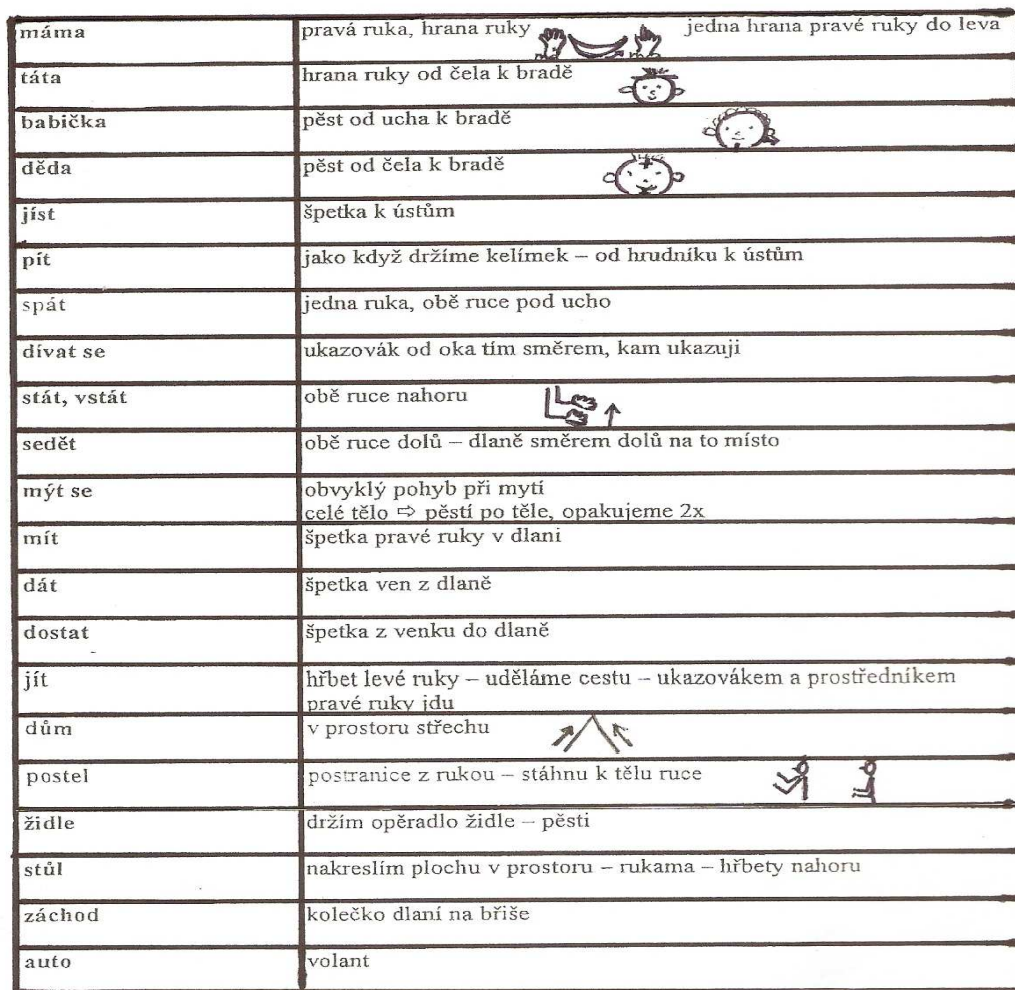 máma pravá ruka, hrana ruky jedna hrana pravé ruky do leva
táta hrana ruky od čela k bradě
babička pěst od ucha k bradě
děda pěst od čela k bradě
jíst špetka k ústům
pít jako když držíme kelímek – od hrudníku k ústům
spát jedna ruka, obě ruce pod ucho
dívat se ukazovák od oka tím směrem, kam ukazuji
stát, vstát obě ruce nahoru
sedět obě ruce dolů – dlaně směrem dolů na to místo
mýt se obvyklý pohyb při mytí
celé tělo ⇨ pěstí po těle, opakujeme 2x
mít špetka pravé ruky v dlani
dát špetka ven z dlaně
dostat špetka z venku do dlaně
jít hřbet levé ruky – uděláme cestu – ukazovákem a prostředníkem
pravé ruky jdu
dům v prostoru střechu
postel postranice z rukou – stáhnu k tělu ruce
židle držím opěradlo židle – pěsti
stůl nakreslím plochu v prostoru – rukama – hřbety nahoru
záchod kolečko dlaní na břiše
auto volant